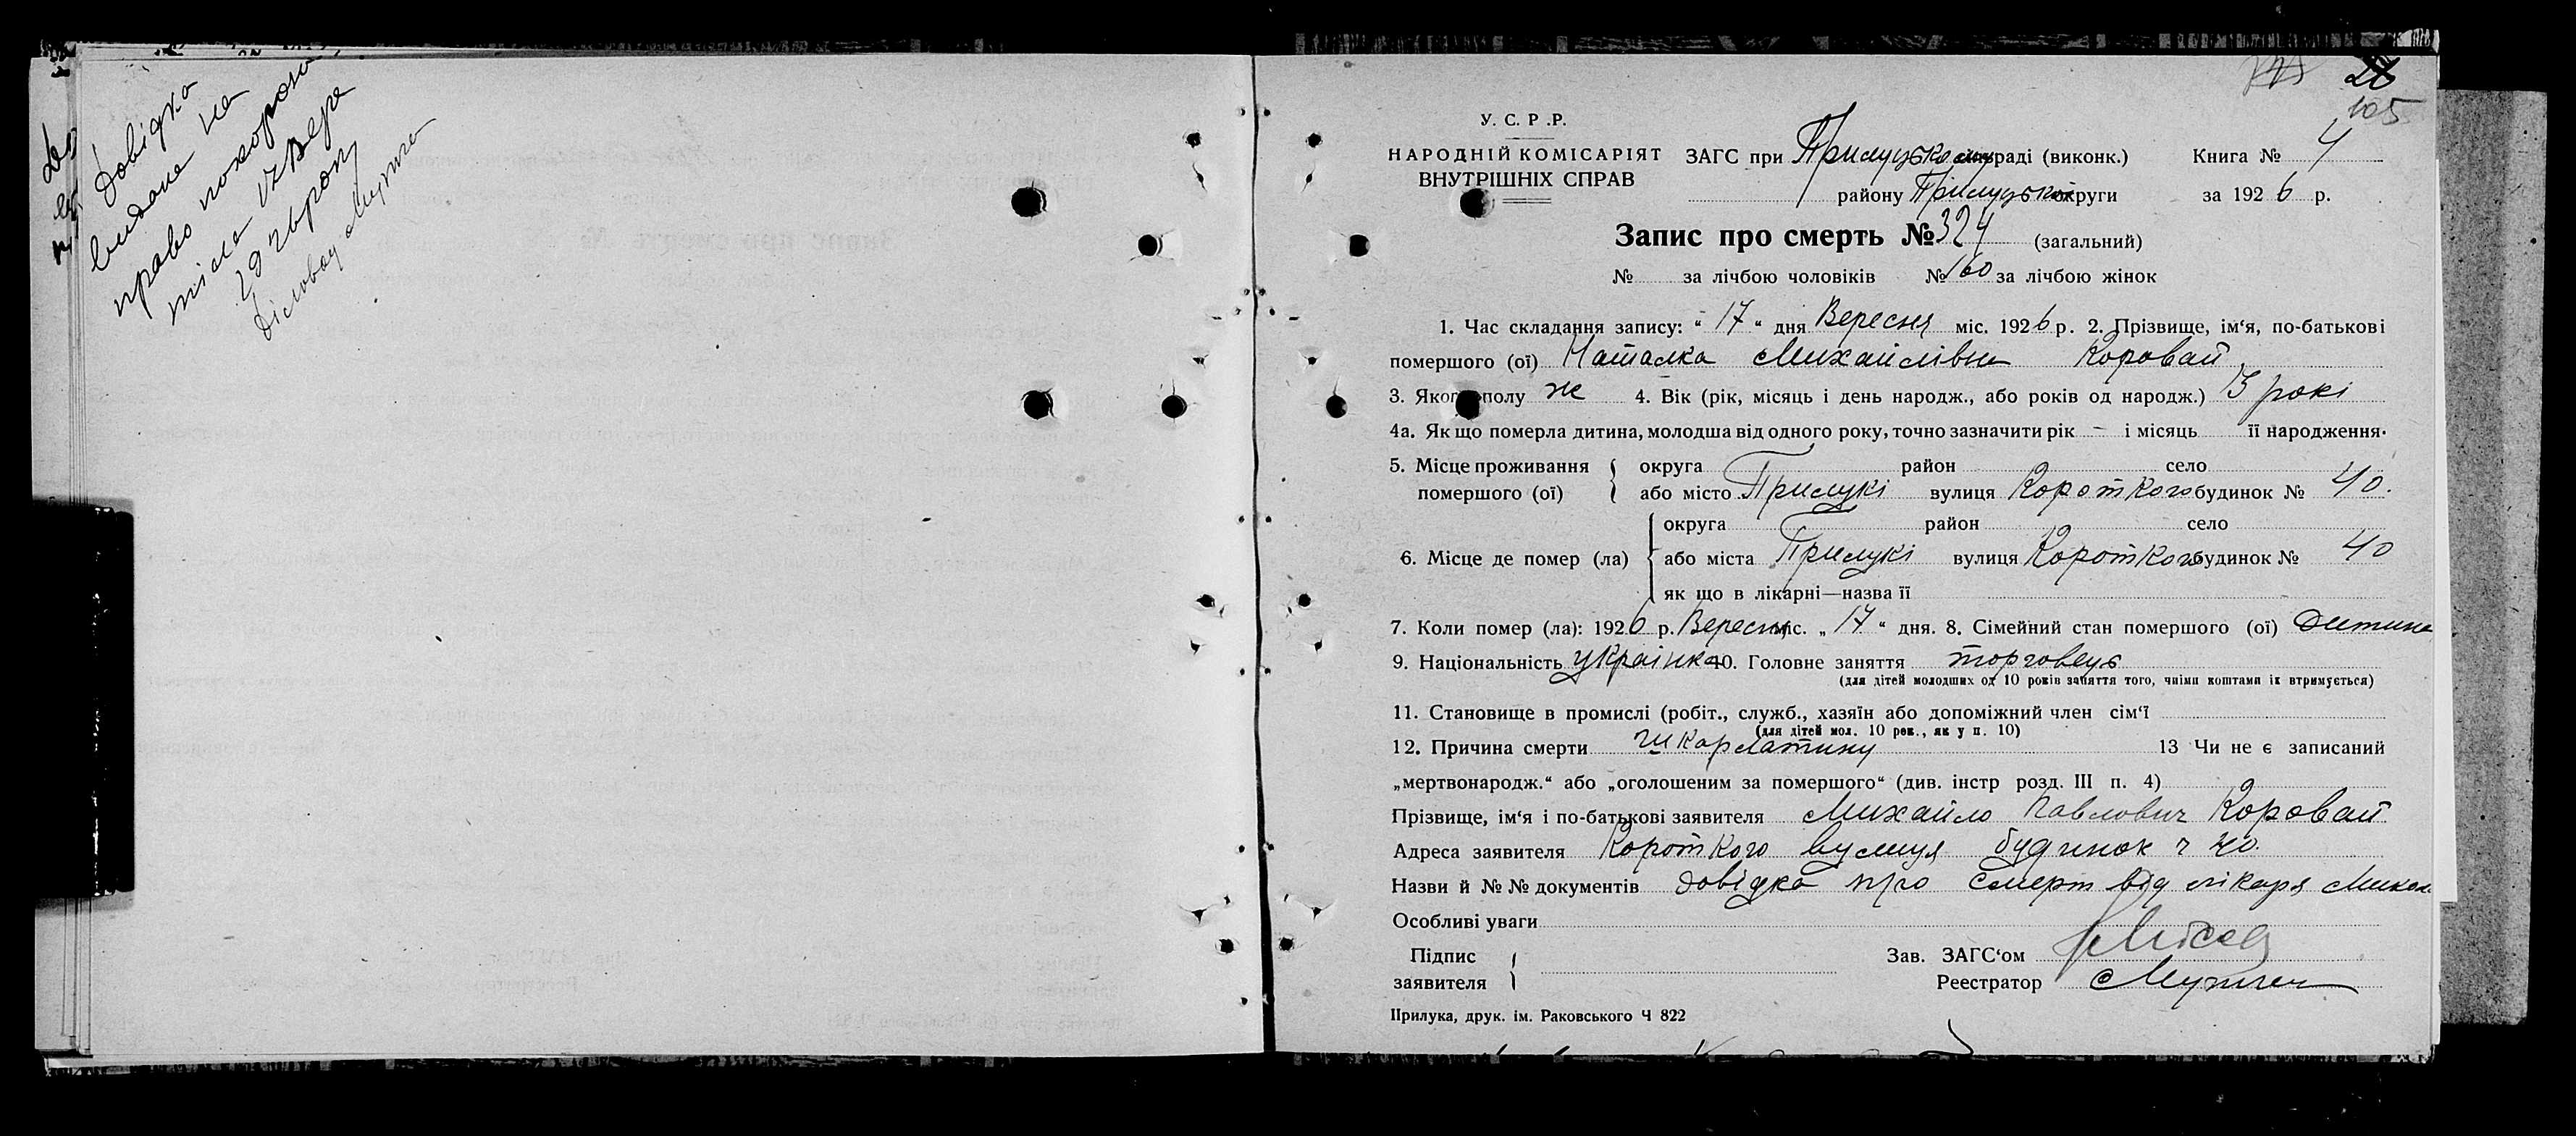 Довідка
видана на
право похорона
тіла
У. С. Р .Р.
НАРОДНІЙ КОМІСАРІЯТ
ВНУТРІШНІХ СПРАВ
ЗАГС при Прилуцькому раді (виконк.)
району Прилуцької округи
Книга № 4
за 1926 р.
105
Запис про смерть № 324 (загальний)
№ за лічбою чоловіків № 160 за лічбою жінок
1. Час складання запису: “ 17 “ дня Вересня міс. 1926 р. 2. Прізвище, ім‘я, по-батькові
помершого (ої) Наталка Михайлівна Коровай
3. Якого полу ж 4. Вік (рік, місяць і день народж., або років од народж.) 13 рокі
4а. Як що померла дитина, молодша від одного року, точно зазначити рік – і місяць її народження.
5. Місце проживання помершого (ої) { округа район село
або місто Прилукі вулиця Короткого будинок № 40.
6. Місце де помер (ла) { округа район село
або міста Прилукі вулиця Короткого будинок № 40
як що в лікарні—назва її
7. Коли помер (ла): 1926 р. Вересня міс. „ 17 “ дня. 8. Сімейний стан помершого (ої) Дитина
9. Національність українка 10. Головне заняття торговець
(для дітей молодших од 10 років заняття того, чиїми коштами їх втримується)
11. Становище в промислі (робіт., служб., хазяїн або допоміжний член сім‘ї
(для дітей мол. 10 рок., як у п. 10)
12. Причина смерти шкарлатину 13 Чи не є записаний
„мертвонародж.“ або „оголошеним за помершого“ (див. інстр розд. III п. 4)
Прізвище, ім‘я і по-батькові заявителя Михайло Павлович Коровай
Адреса заявителя Короткого вулиця будинок ч 40.
Назви й № № документів довідка про смерт від лікаря
Особливі уваги
Підпис заявителя }
Зав. ЗАГС‘ом
Реестратор
Прилука, друк. ім. Раковського Ч 822